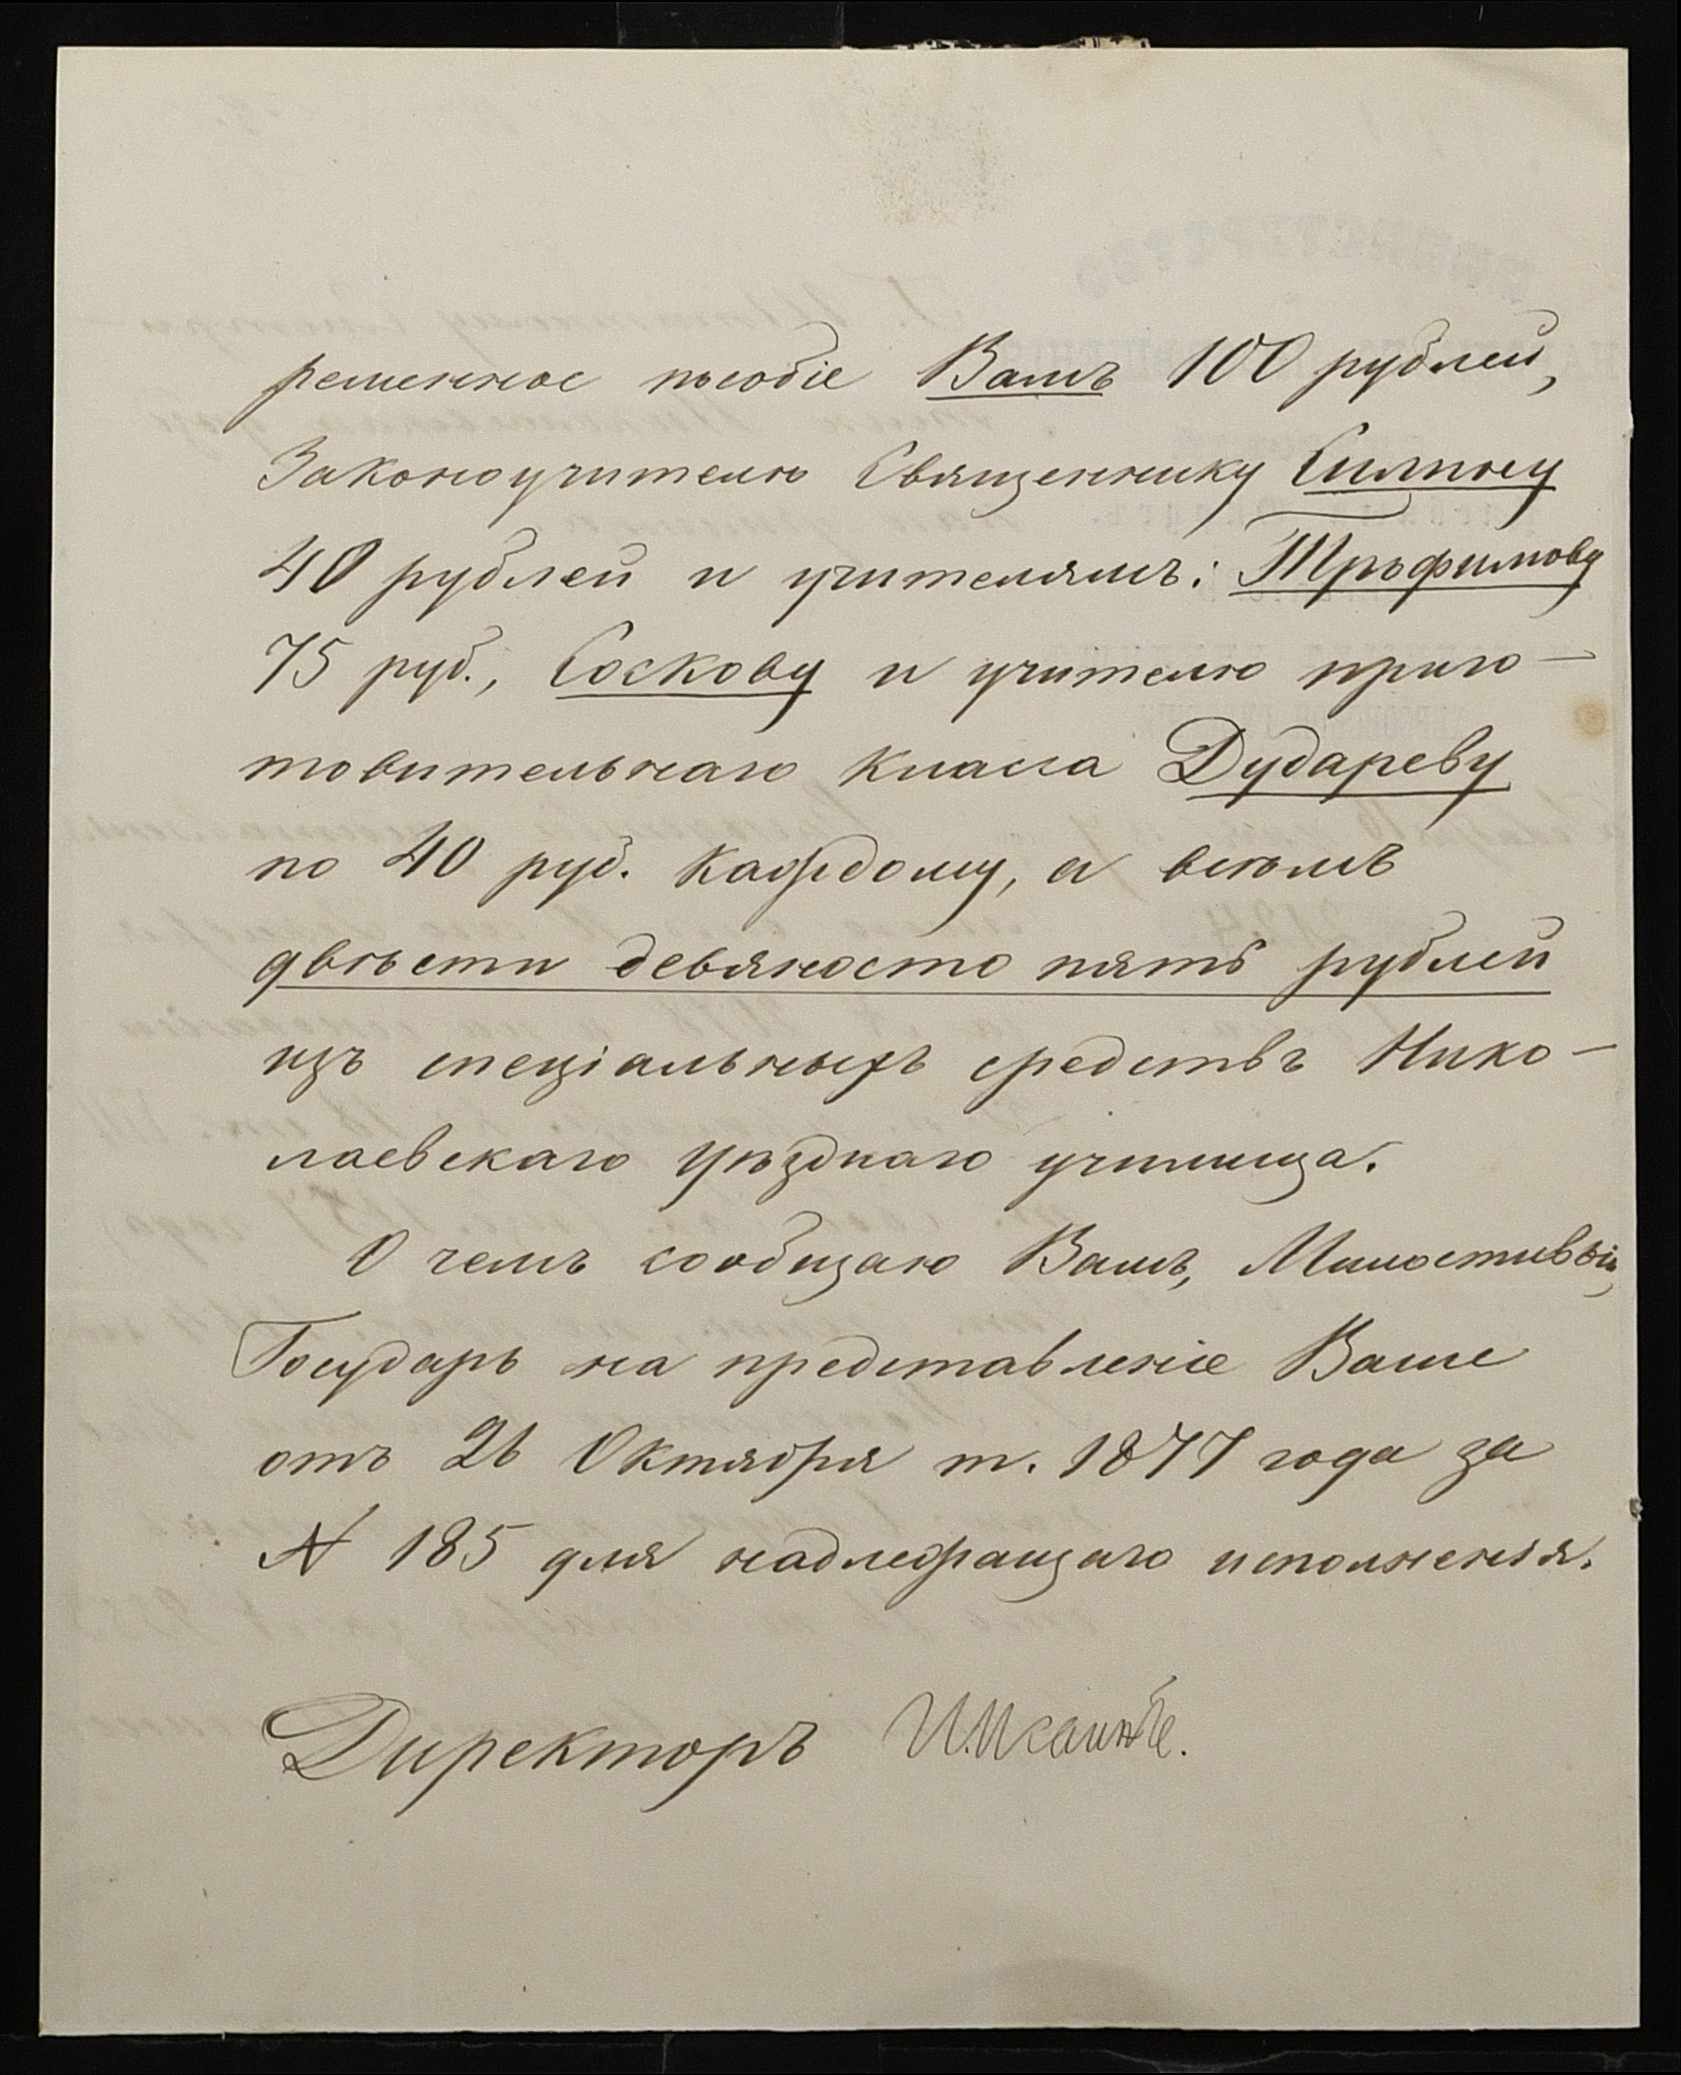 ременное пособіе Вамъ 100 рублей,
Законоучителю Священнику
40 рублей и учителямъ: Трофимову
75 руб., Соскову и учителю приго-
товительнаго класса Дудареву
по 40 руб. каждому, а всѣмъ
двѣсти девяносто пять рублей
изъ спеціальныхъ средствъ Нико-
лаевскаго уѣзднаго училища.
О чемъ сообщаю Вамъ, Милостивый
Государь на представленіе Ваше
отъ 26 Октября т. 1877 года за
№ 185 для надлежащаго исполненія.
Директоръ